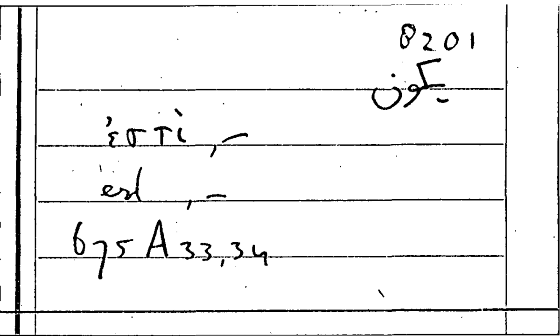 8201
يكون
ἐστὶ ,–
est ,–
675 A 33,34